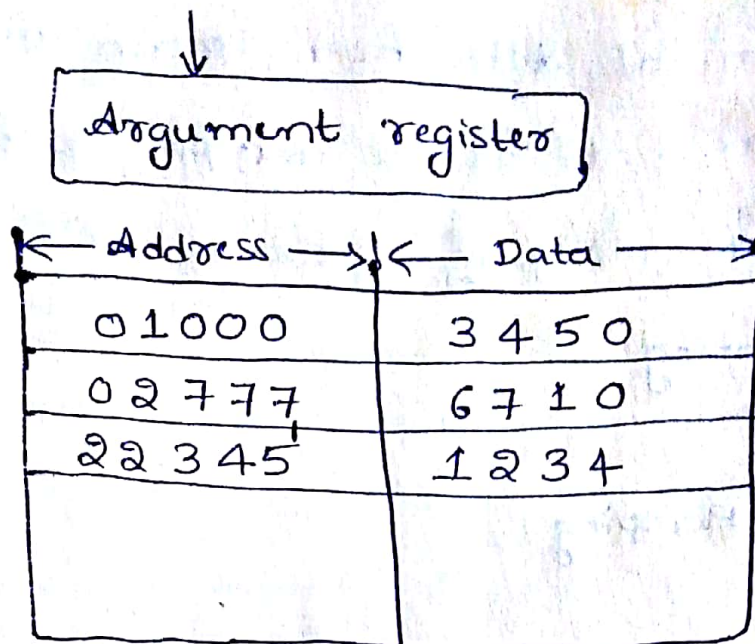 Argument register
Address Data
01000 3450
02777 6710
22345 1234